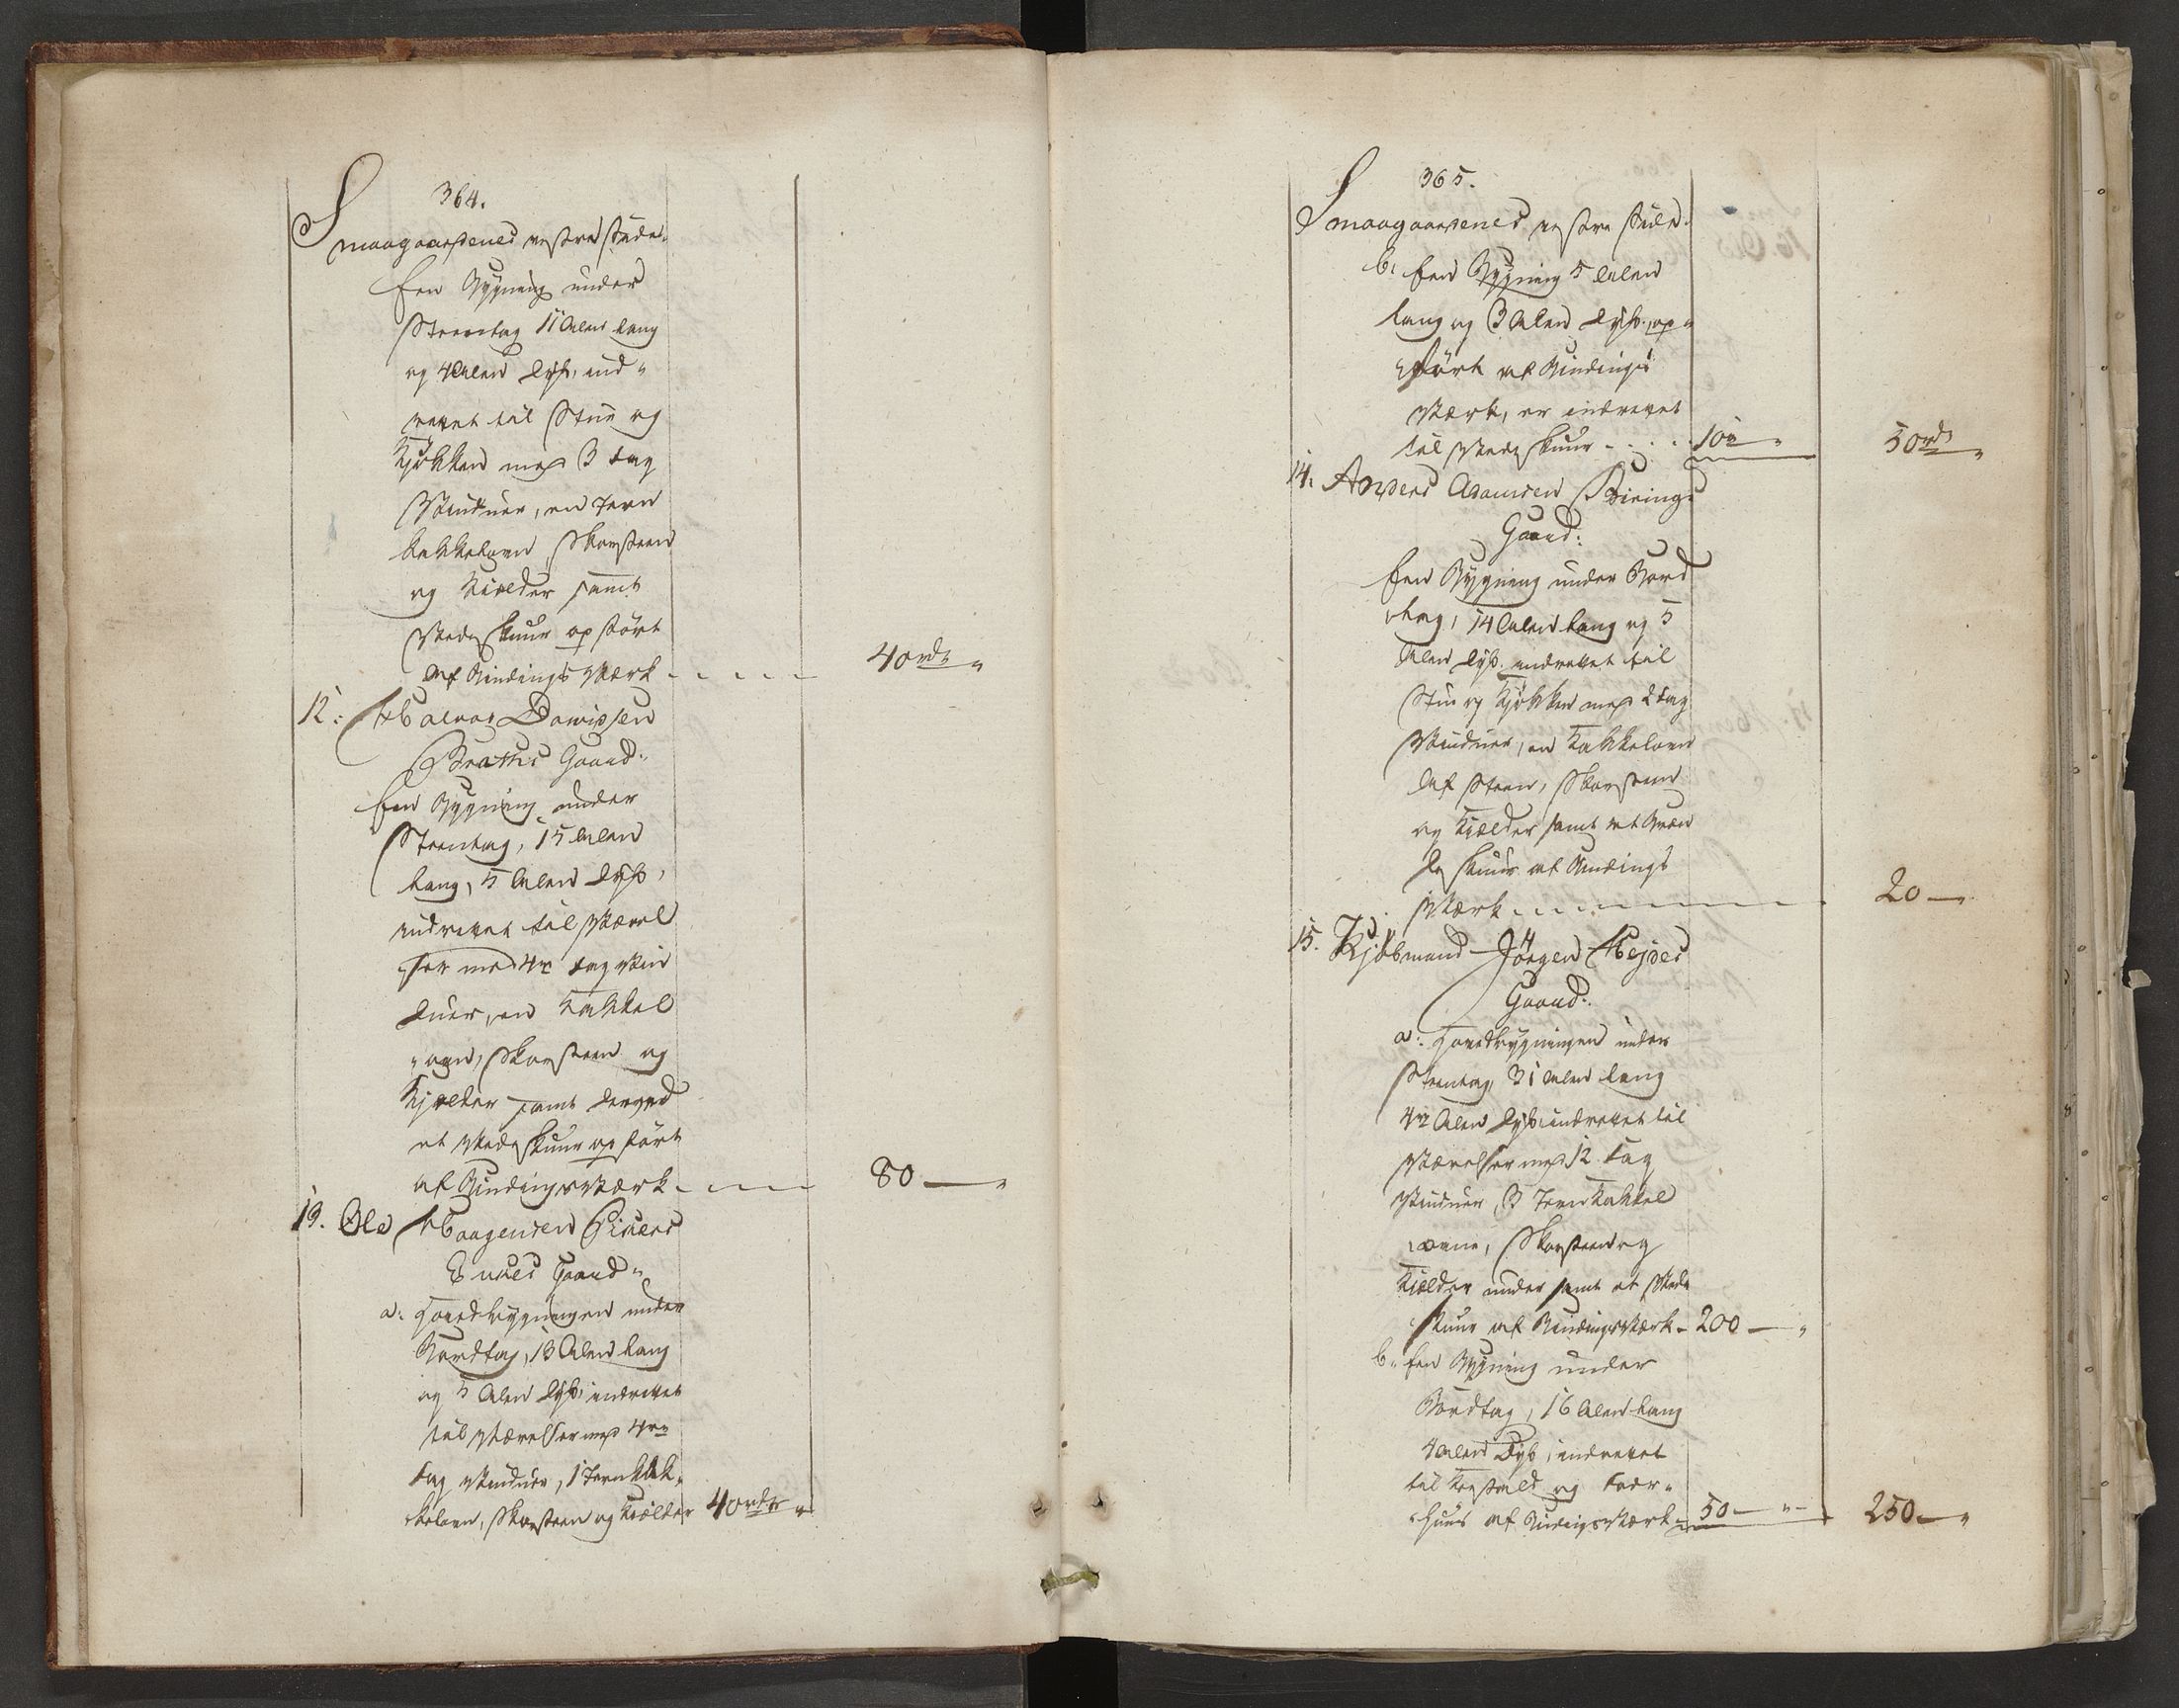 364.
Smaagaardenes vestre Side.
Een Bygning under
Steentag 11 Alen lang
og 4 Alen dyb, ind-
rettet til Stue og
Kjøkken med 3 Fag
Vinduer, en Jern
kakkelovn, Skorsteen
og Kielder samt
Vedeskuur opført
af Bindings Værk - - - - 40 rdr "
12:
Davidsen
Gaard.
Een Bygning under
Steentag, 15 Alen
lang, 5 Alen dyb,
indrettet til Værel
ser med 4re Fag Vin
duer, en Kakkel
ovn, Skorsteen og
Kjelder samt derved
et Vedeskuur opført
af Bindingsværk - - - 80 — "
13. Ole Haagensen
Enkes Gaard.
a. Hovedbygningen under
Bordtag, 13 Alen lang
og 5 Alen dyb, indrettet
til Værelser med 4re
Fag Vinduer, 1 Jernkak-
kelovn, Skorsteen og Kielder 40 rdr "
365.
Smaagaardenes vestre Side.
b. Een Bygning 5 Alen
lang og 3 Alen dyb, op-
ført af Bindings
Værk, er indrettet
til Vedeskuur - - - - 10 " 50 rdr "
14. Anders Adamsen
Gaard:
Een Bygning under Bord
tag, 14 Alen lang og 5
Alen dyb, indrettet til
Stue og Kjøkken med 2 Fag
Vinduer, en Kakkelovn
af Steen, Skorsteen
og Kielder samt et Bræn
deskuur af Bindings
Værk - - - - - - 20 —
15. Kjøbmand Jörgen
Gaard.
a. Hovedbygningen under
Steentag, 31 Alen lang
4re Alen dyb, indrettet til
Værelser med 12 Fag
Vinduer, 3 Jern Kakkel
ovne, Skorsteen og
Kielder under samt et Vede
skuur af Bindingsværk - 200 — "
b. Een Bygning under
Bordtag, 16 Alen lang
4 Alen dyb, indrettet
til Koestald og Foer-
huus af Bindingsværk - 50 — " 250 — "